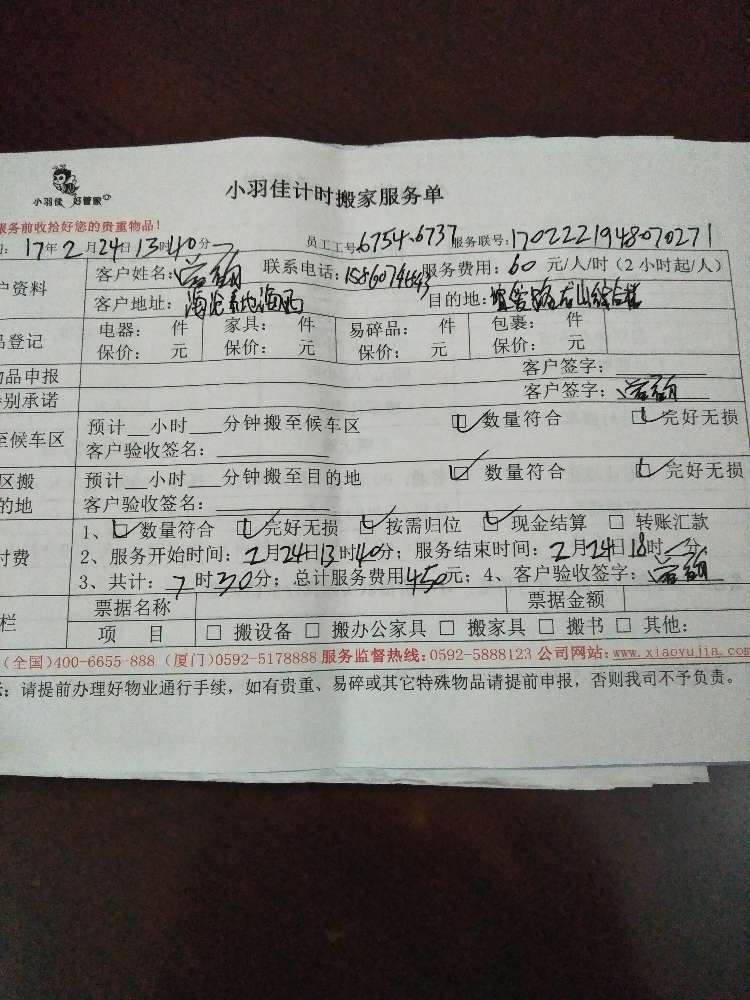 小羽佳 好管家
小羽佳计时搬家服务单
服务前收拾好您的贵重物品!
17年2月24日13时40分 员工工号:6754-6737 服务联号:1702221948070271
户资料 客户姓名: 联系电话: 服务费用:60 元/人/时(2小时起/人)
客户地址: 目的地:
品登记 电器: 件 家具: 件 易碎品: 件 包裹: 件
保价: 元 保价: 元 保价: 元 保价: 元
物品申报 客户签字:
特别承诺 客户签字:
至候车区 预计 小时 分钟搬至候车区 数量符合 完好无损
客户验收签名:
区搬 预计 小时 分钟搬至目的地 数量符合 完好无损
的地 客户验收签名:
1、数量符合 完好无损 按需归位 现金结算 □ 转账汇款
付费 2、服务开始时间:2月24日13时40分;服务结束时间:2月24日18时 分;
3、共计:7时30分;总计服务费用450元;4、客户验收签字:
栏 票据名称 票据金额
项 目 □ 搬设备 □ 搬办公家具 □ 搬家具 □ 搬书 □ 其他:
(全国)400-6655-888 (厦门)0592-5178888 服务监督热线:0592-5888123 公司网站:www.xiaoyujia.com
:请提前办理好物业通行手续,如有贵重、易碎或其它特殊物品请提前申报,否则我司不予负责。